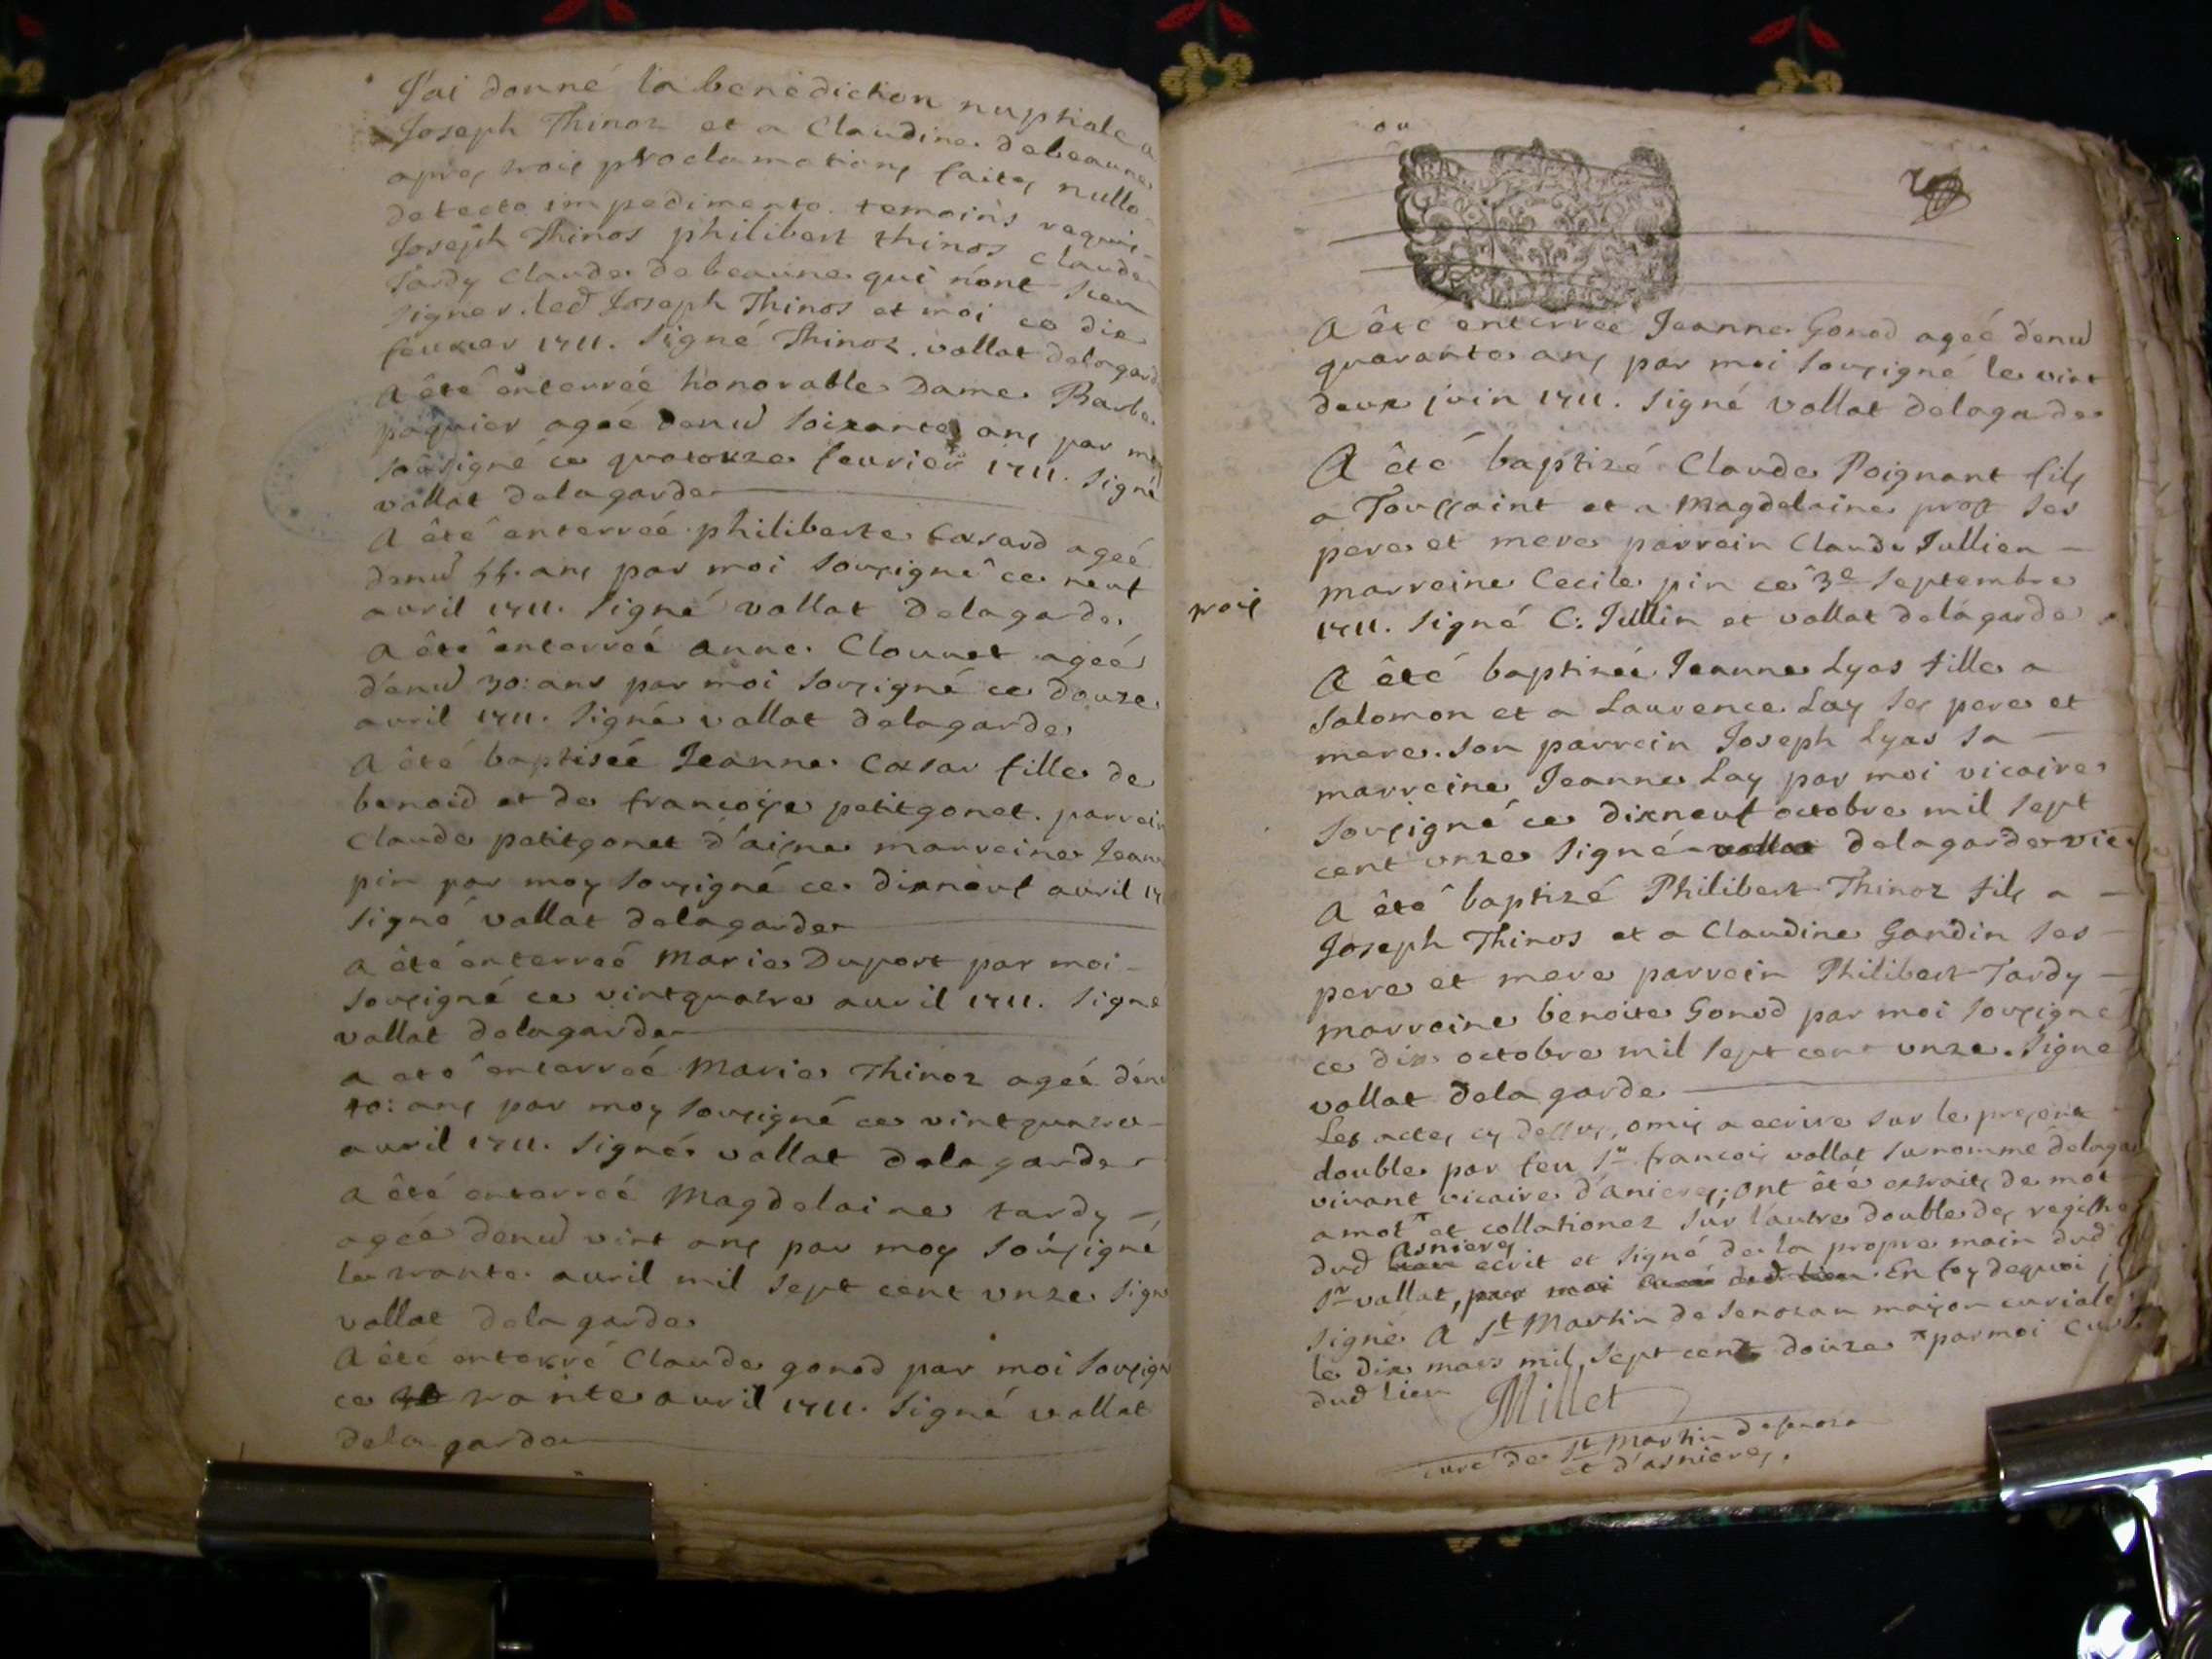 J'ai donné la benediction nuptiale a
Joseph Thinoz et a Claudine debeaune
apres trois proclamations faites nullo
detecto impedimento temoins requis
Joseph Thinos philibert thinos Claude
Tardy Claude debeaune qui n'ont sceu
signer. led Joseph Thinos et moi ce dix
feurier 1711. signé Thinoz. vallat delagard
A êté enterreé honorable Dame Barbe
paquier ageé denud soixante ans par moi
sousigné ce quatorze feurier 1711. signé
vallat delagarde
A êté enterreé philiberte Casard ageé
denud 55. ans par moi sousigné ce neuf
avril 1711. signé vallat delagarde
A êté enterreé anne Clouuet ageé
d'enud 30: ans par moi sousigné ce douze
avril 1711. signé vallat delagarde
A êté baptiseé Jeanne Casar fille de
benoid et de françoise petitgonet. parrein
Claude petitgonet d'aisne marreine Jeanne
pin par moy sousigné ce dixneuf avril 17
signé vallat delagarde
A êté enterreé Marie Duport par moi
sousigné ce vintquatre auril 1711. signé
vallat delagarde
a eté enterreé Marie Thinoz ageé d'enu
40: ans par moy sousigné ce vintquatre
auril 1711. signé vallat delagarde
a êté enterreé Magdelaine tardy
ageé denud vint ans par moy sousigné
le trante auril mil sept cent unze signé
vallat delagarde
A êté enterré Claude gonod par moi sousigné
ce trante auril 1711. signé vallat
delagarde
A êté enterreé Jeanne Gonod ageé denud
quarante ans par moi sousigné le vint
deux juin 1711. signé vallat delagarde
A êté baptizé Claude Poignant fils
a Toussaint et a Magdelaine prost ses
pere et mere parrein Claude Jullien
marreine Cecile pin ce 3e septembre
trois
1711. signé C: Jullin et vallat delagarde
A êté baptizeé Jeanne Lyas fille a
Salomon et a Laurence Lay ses pere et
mere. son parrein Joseph Lyas sa
marreine Jeanne Lay par moi vicaire
sousigné ce dixneuf octobre mil sept
cent unze signé vallat delagarde vic
A êté baptizé Philibert Thinoz fils a
Joseph Thinos et a Claudine Gandin ses
pere et mere parrein Philibert Tardy
marreine benoite Gonod par moi sousigné
ce dix octobre mil sept cent unze. signé
vallat delagarde
Les actes cy dessus, omis a ecrire sur le present
double par feu sr françois vallat surnommé delagar
vivant vicaire d'anieres; ont êté extraits de mot
a mot et collationez sur l'autre double des registres
dud Asnieres ecrit et signé de la propre main dud
sr vallat, par moi curé dud lieu. En foy dequoi j
signé A St Martin de Senozan maison curiale
le dix mars mil sept cent douze par moi curé
dud lieu Millet
curé de St Martin de senoza
et d'asnieres.